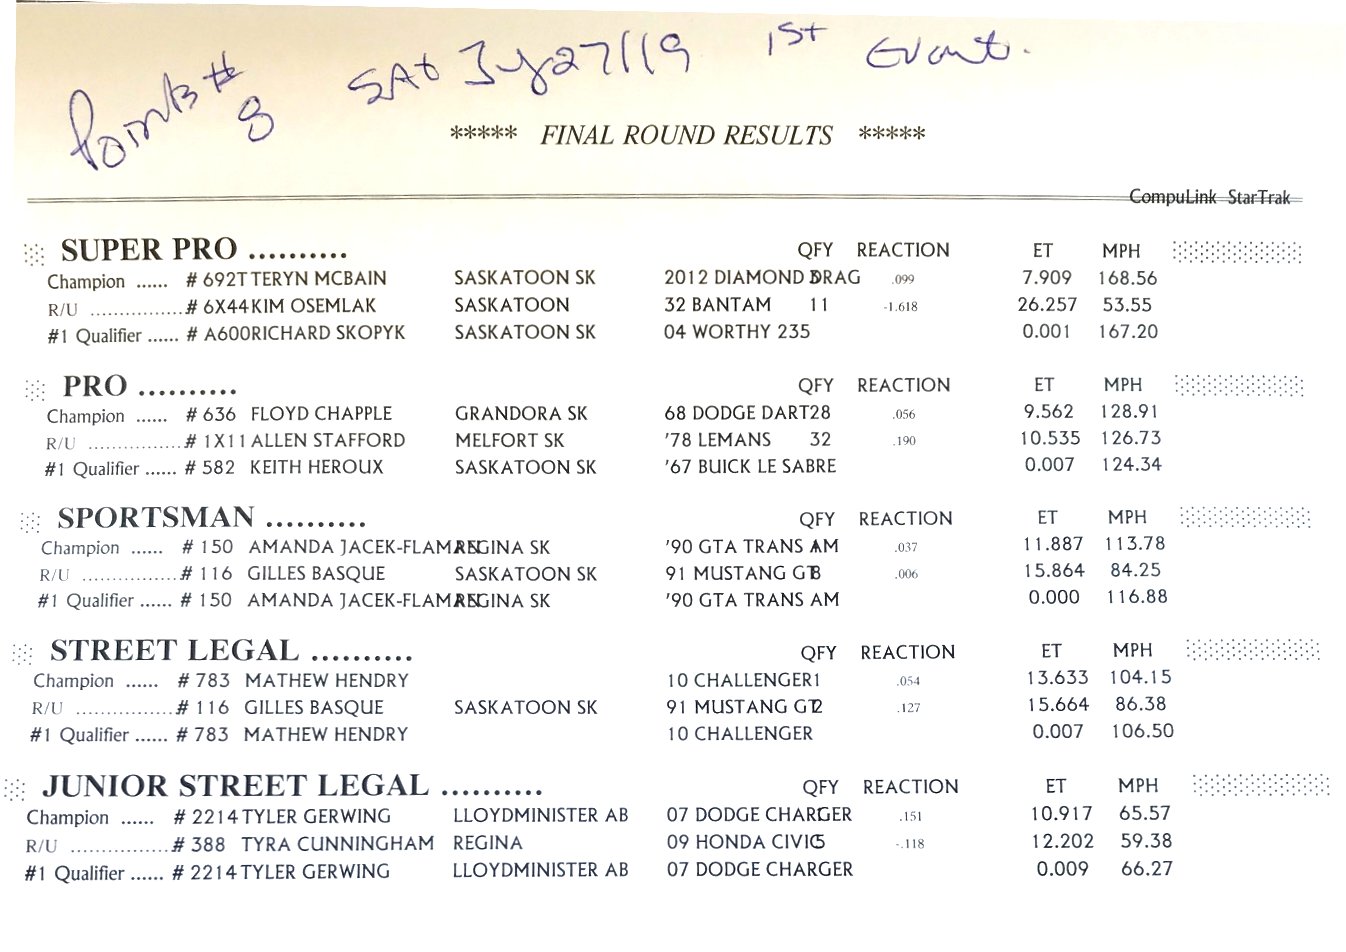 Points # 8 SAt July 27/19 1st Event.
***** FINAL ROUND RESULTS *****
CompuLink StarTrak
SUPER PRO .......... QFY REACTION ET MPH
Champion ...... # 692T TERYN MCBAIN SASKATOON SK 2012 DIAMOND DRAG .099 7.909 168.56
R/U ................# 6X44 KIM OSEMLAK SASKATOON 32 BANTAM 11 -1.618 26.257 53.55
#1 Qualifier ...... # A600 RICHARD SKOPYK SASKATOON SK 04 WORTHY 235 0.001 167.20
PRO .......... QFY REACTION ET MPH
Champion ...... # 636 FLOYD CHAPPLE GRANDORA SK 68 DODGE DART 28 .056 9.562 128.91
R/U ................# 1X11 ALLEN STAFFORD MELFORT SK '78 LEMANS 32 .190 10.535 126.73
#1 Qualifier ...... # 582 KEITH HEROUX SASKATOON SK '67 BUICK LE SABRE 0.007 124.34
SPORTSMAN .......... QFY REACTION ET MPH
Champion ...... # 150 AMANDA JACEK-FLAMAN REGINA SK '90 GTA TRANS AM .037 11.887 113.78
R/U ................# 116 GILLES BASQUE SASKATOON SK 91 MUSTANG GT 8 .006 15.864 84.25
#1 Qualifier ...... # 150 AMANDA JACEK-FLAMAN REGINA SK '90 GTA TRANS AM 0.000 116.88
STREET LEGAL .......... QFY REACTION ET MPH
Champion ...... # 783 MATHEW HENDRY 10 CHALLENGER 1 .054 13.633 104.15
R/U ................# 116 GILLES BASQUE SASKATOON SK 91 MUSTANG GT 2 .127 15.664 86.38
#1 Qualifier ...... # 783 MATHEW HENDRY 10 CHALLENGER 0.007 106.50
JUNIOR STREET LEGAL .......... QFY REACTION ET MPH
Champion ...... # 2214 TYLER GERWING LLOYDMINISTER AB 07 DODGE CHARGER .151 10.917 65.57
R/U ................# 388 TYRA CUNNINGHAM REGINA 09 HONDA CIVIC 5 -.118 12.202 59.38
#1 Qualifier ...... # 2214 TYLER GERWING LLOYDMINISTER AB 07 DODGE CHARGER 0.009 66.27